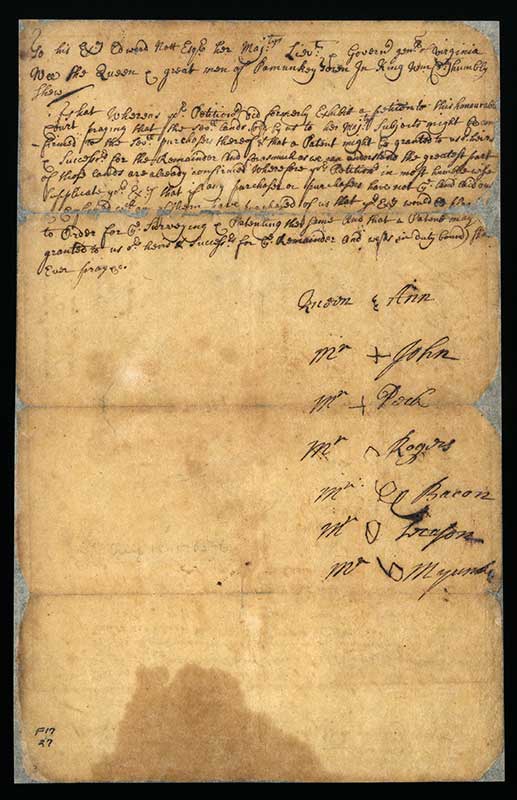 To his Exy Edward Nott Esqr her Majtys Lievt & Governr genll of Virginia
Wee the Queen & great men of Pamunkey Town In King Wm Cty humbly
Shew
That Whereas yr Petitionrs did formerly Exhibit a petition to this honourable
Court praying that the Sevll lands by us to her Majtys Subjects might be con
firmed to the Sevll purchasers thereof & that a Patent might be granted to us our heirs
& Successors for the Remainder And as much as we can understand the greatest part
of those lands are already confirmed Wherefore yr Petitionrs in most humble wise
Supplicate yr Exy that if any Purchaser or purchasers have not
of them have purchased of us that yr Exy would be
to Order for ye Surveying & Patenting the same And that a Patent may
granted to us or heirs & Successrs for ye Remainder And we as in duty bound
Ever pray &c.
Queen & Ann
Mr + John
Mr + Pock
Mr Rogers
Mr Bacon
Mr
Mr
F17
27